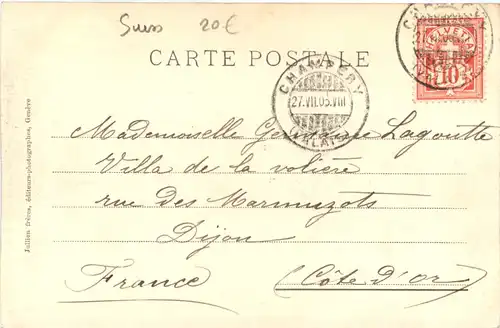 Suiss 20€
CARTE POSTALE
CHAMPÉRY
HELVETIA
10
CHAMPÉRY
27.VII.05.VIII
VALAIS
Mademoiselle Germaine Lagoutte
Villa de la volière
rue des Marmuzots
Dijon
France (Côte d'Or)
Jullien frères, éditeurs-photographes, Genève